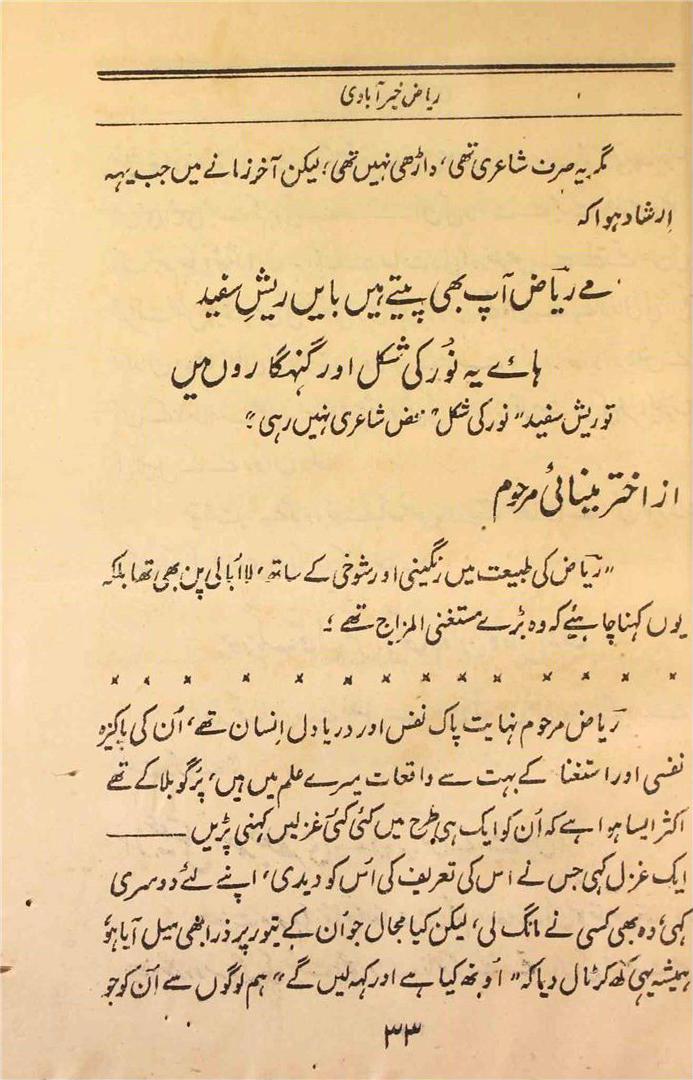 ریاض خیرآبادی
مگر یہ صرف شاعری تھی، داڑھی نہیں تھی، لیکن آخر زمانے میں جب یہہ
اِرشاد ہوا کہ
مے ریاؔض آپ بھی پیتے ہیں بایں ریشِ سفید
ہائے یہ نُور کی شکل اور گنہگاروں میں
تو ریش سفید "نور کی شکل" محض شاعری نہیں رہی"
از اختر مینائی مرحوم
"ریاؔض کی طبیعت میں رنگینی اور شوخی کے ساتھ، لااُبالی پن بھی تھا بلکہ
یوں کہنا چاہیئے کہ وہ بڑے مستغنی المزاج تھے؛
× × × × × × × × × × × × × ×
ریاؔض مرحوم نہایت پاک نفس اور دریا دل اِنسان تھے، اُن کی پاکیزہ
نفسی اور استغنا کے بہت سے واقعات میرے علم میں ہیں، پُرگو بلا کے تھے
اکثر ایسا ہوا ہے کہ اُن کو ایک ہی طرح میں کئی کئی غزلیں کہنی پڑیں ——
ایک غزل کہی جس نے اس کی تعریف کی اُس کو دیدی، اپنے لئے دوسری
کہی، وہ بھی کسی نے مانگ لی، لیکن کیا مجال جو اُن کے تیور پر ذرا بھی میل آیا ہو
ہمیشہ یہی کہہ کر ٹال دیا کہ "اونھ کیا ہے اور کہہ لیں گے" ہم لوگوں سے اُن کو جو
۳۳